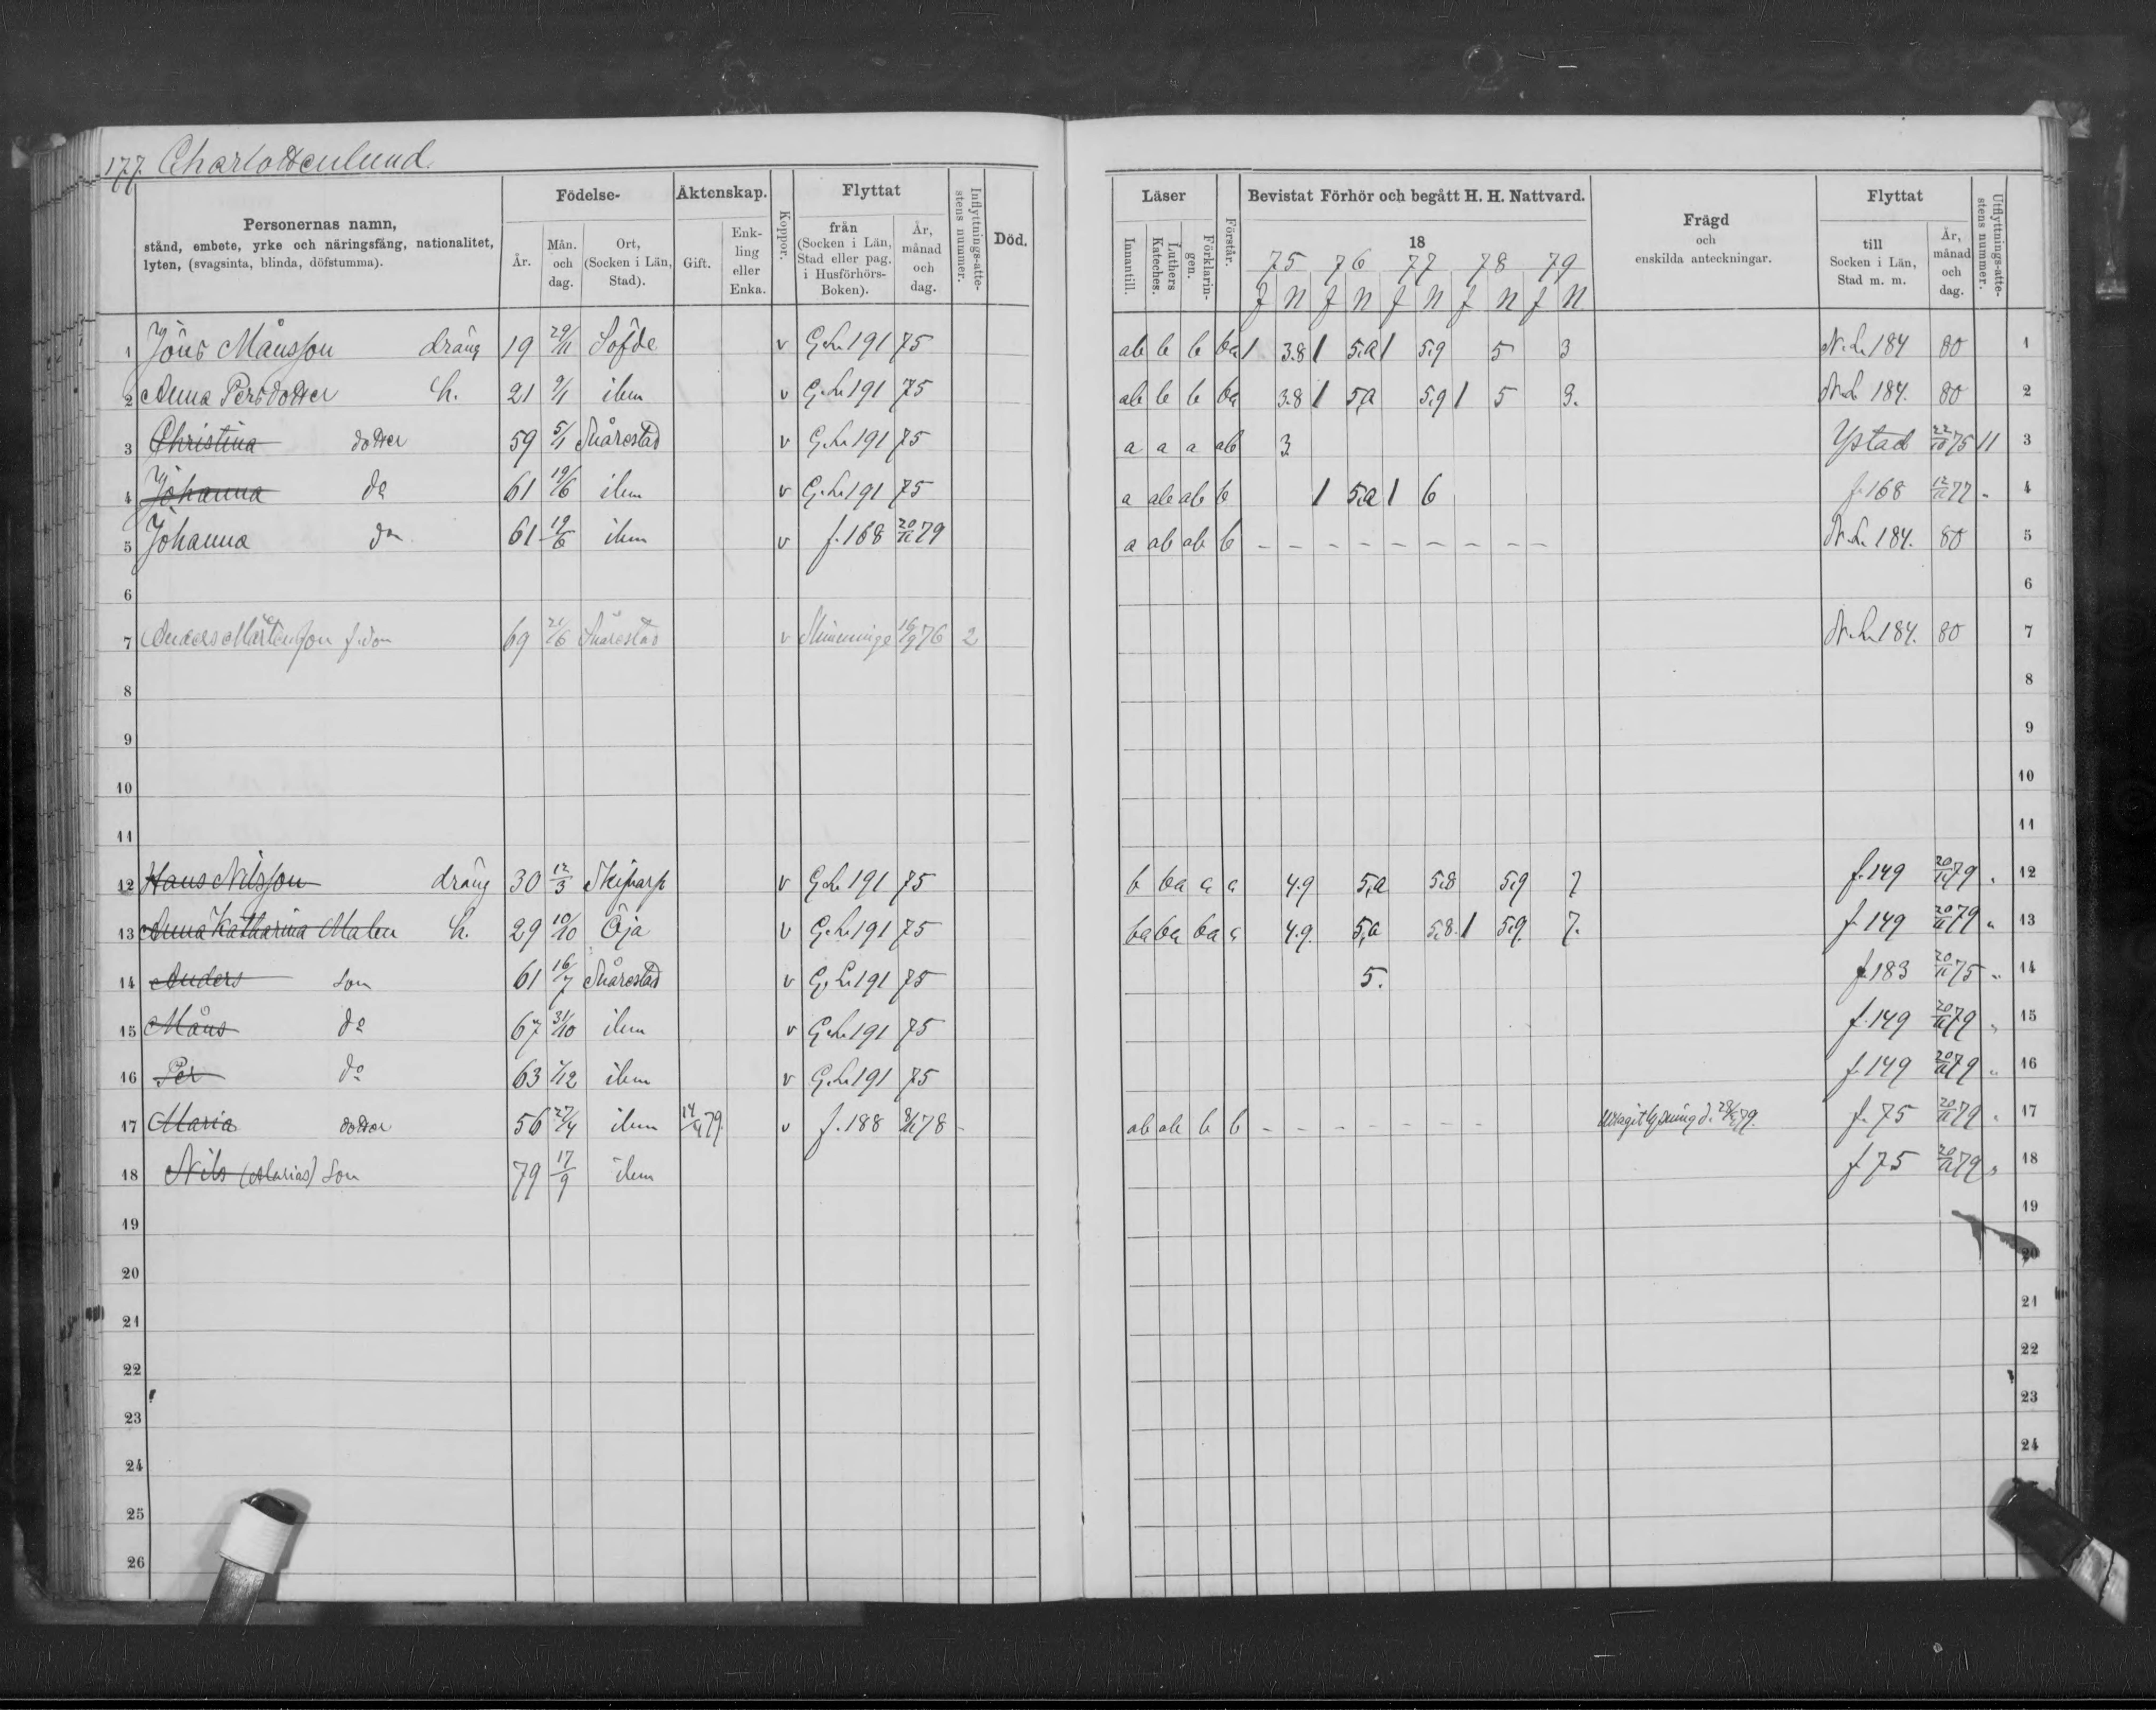 177. Charlottenlund.
Personernas namn, stånd, embete, yrke och näringsfång, nationalitet, lyten, (svagsinta, blinda, döfstumma). Födelse- År. Mån. och dag. Ort, (Socken i Län, Stad). Äktenskap. Gift. Enk-ling eller Enka. Koppor. Flyttat från (Socken i Län, Stad eller pag. i Husförhörs-Boken). År, månad och dag. Inflyttnings-atte-stens nummer. Död.
Läser Innantill. Luthers Kateches. Förklarin-gen. Förstår. Bevistat Förhör och begått H. H. Nattvard. 18 Frägd och enskilda anteckningar. Flyttat till Socken i Län, Stad m. m. År, månad och dag. Utflyttnings-atte-stens nummer.
75 76 77 78 79
f N f N f N f N f N.
1 Jöns Månsson dräng 19 29/11 Söfde v G.L. 191 75 ab b b ba 1 3.8 1 5,a 1 5,9 5 3 N.L. 184 80 1
2 Anna Persdotter h. 21 9/1 ibm v G.L. 191 75 ab b b ba 3.8 1 5,a 5,9 1 5 3. N.L. 184. 80 2
3 Christina dotter 59 5/1 Snårestad v G.L. 191 75 a a a ab 3 Ystad 22/10 75 11 3
4 Johanna do 61 19/6 ibm v G.L. 191 75 a ab ab b 1 5,a 1 6 f. 168 12/11 77 „ 4
5 Johanna do 61 19/6 ibm v f. 168 20/11 79 a ab ab b – – – – – – – – N.L. 184. 80 5
6 6
7 Anders Mårtensson f.son 69 21/6 Snårestad v 16/9 76 2 N.L. 184. 80 7
8 8
9 9
10 10
11 11
12 Hans Nilsson dräng 30 12/3 Skifvarp v G.L. 191 75 b ba a a 4.9 5,a 5,8 5,9 7 f. 149 20/11 79 „ 12
13 Anna Katharina Malen h. 29 10/10 Öja v G.L. 191 75 ba ba ba a 4.9. 5,a 5,8. 1 5,9. 7. f. 149 20/11 79 „ 13
14 Anders son 61 16/7 Snårestad v G.L. 191 75 5. f. 183 20/11 75 „ 14
15 Måns do 67 31/10 ibm v G.L. 191 75 f. 149 20/11 79 „ 15
16 Per do 63 1/12 ibm v G.L. 191 75 f. 149 20/11 79 „ 16
17 Maria dotter 56 27/4 ibm 79. v f. 188 78 ab ab b b – – – – – – – Uttagit lysning d. 79. f. 75 20/11 79 „ 17
18 Nils (Marias) Son 79 17/9 ibm f. 75 20/11 79 „ 18
19 19
20 20
21 21
22 22
23 23
24 24
25
26